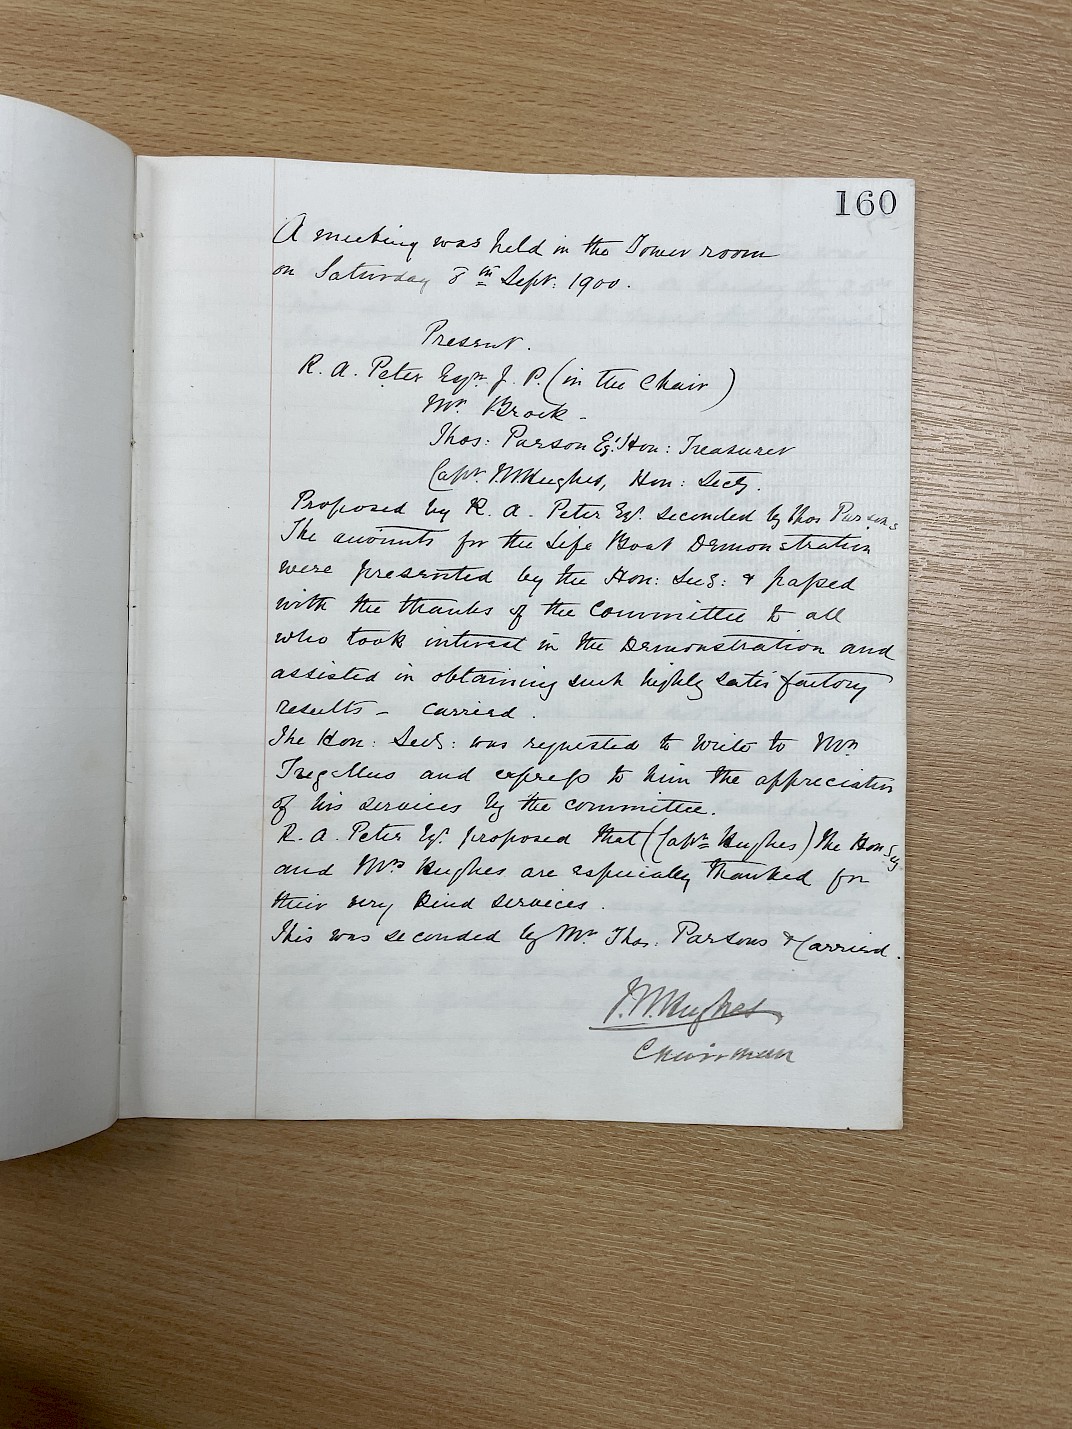 160
A meeting was held in the Tower room
on Saturday 8th Sept: 1900.
Present.
R. A. Peter Esqr. J. P. (in the Chair)
Mr. Brock -
Thos: Parson Esq: Hon: Treasurer
Capt. Hughes, Hon: Secty.
Proposed by R. A. Peter Esq. seconded by Thos Parsons
The accounts for the Life Boat Demonstration
were presented by the Hon: Sec: & passed
with the thanks of the Committee to all
who took interest in the Demonstration and
assisted in obtaining such highly satisfactory
results - carried.
The Hon: Sec: was requested to write to Mr
Tregellus and express to him the appreciation
of his services by the committee.
R. A. Peter Esq. proposed that (Capt Hughes) the Hon. Secy
and Mrs Hughes are especially thanked for
their very kind services.
This was seconded by Mr Thos. Parsons & Carried.
Hughes
Chairman